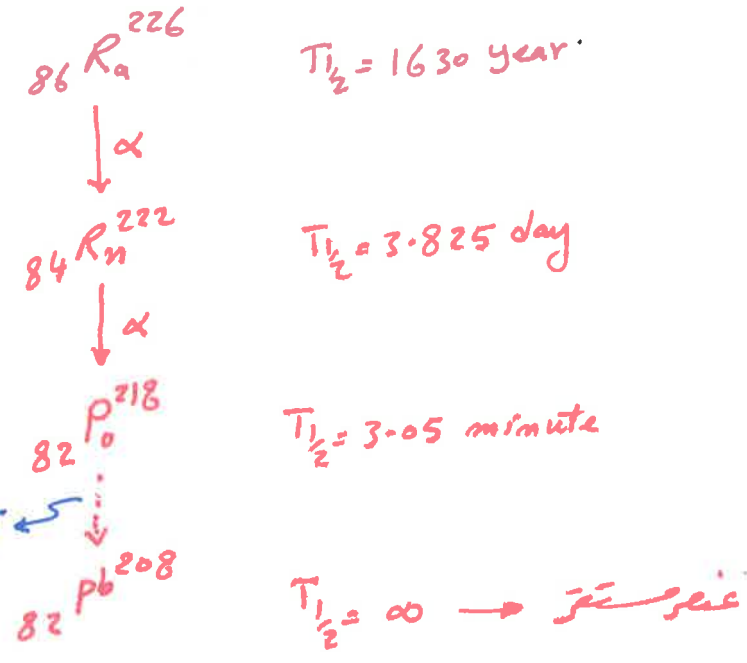 ₈₆Ra²²⁶ T½ = 1630 year
α
₈₄Rn²²² T½ = 3.825 day
α
₈₂Po²¹⁸ T½ = 3.05 minute
₈₂Pb²⁰⁸ T½ = ∞ →